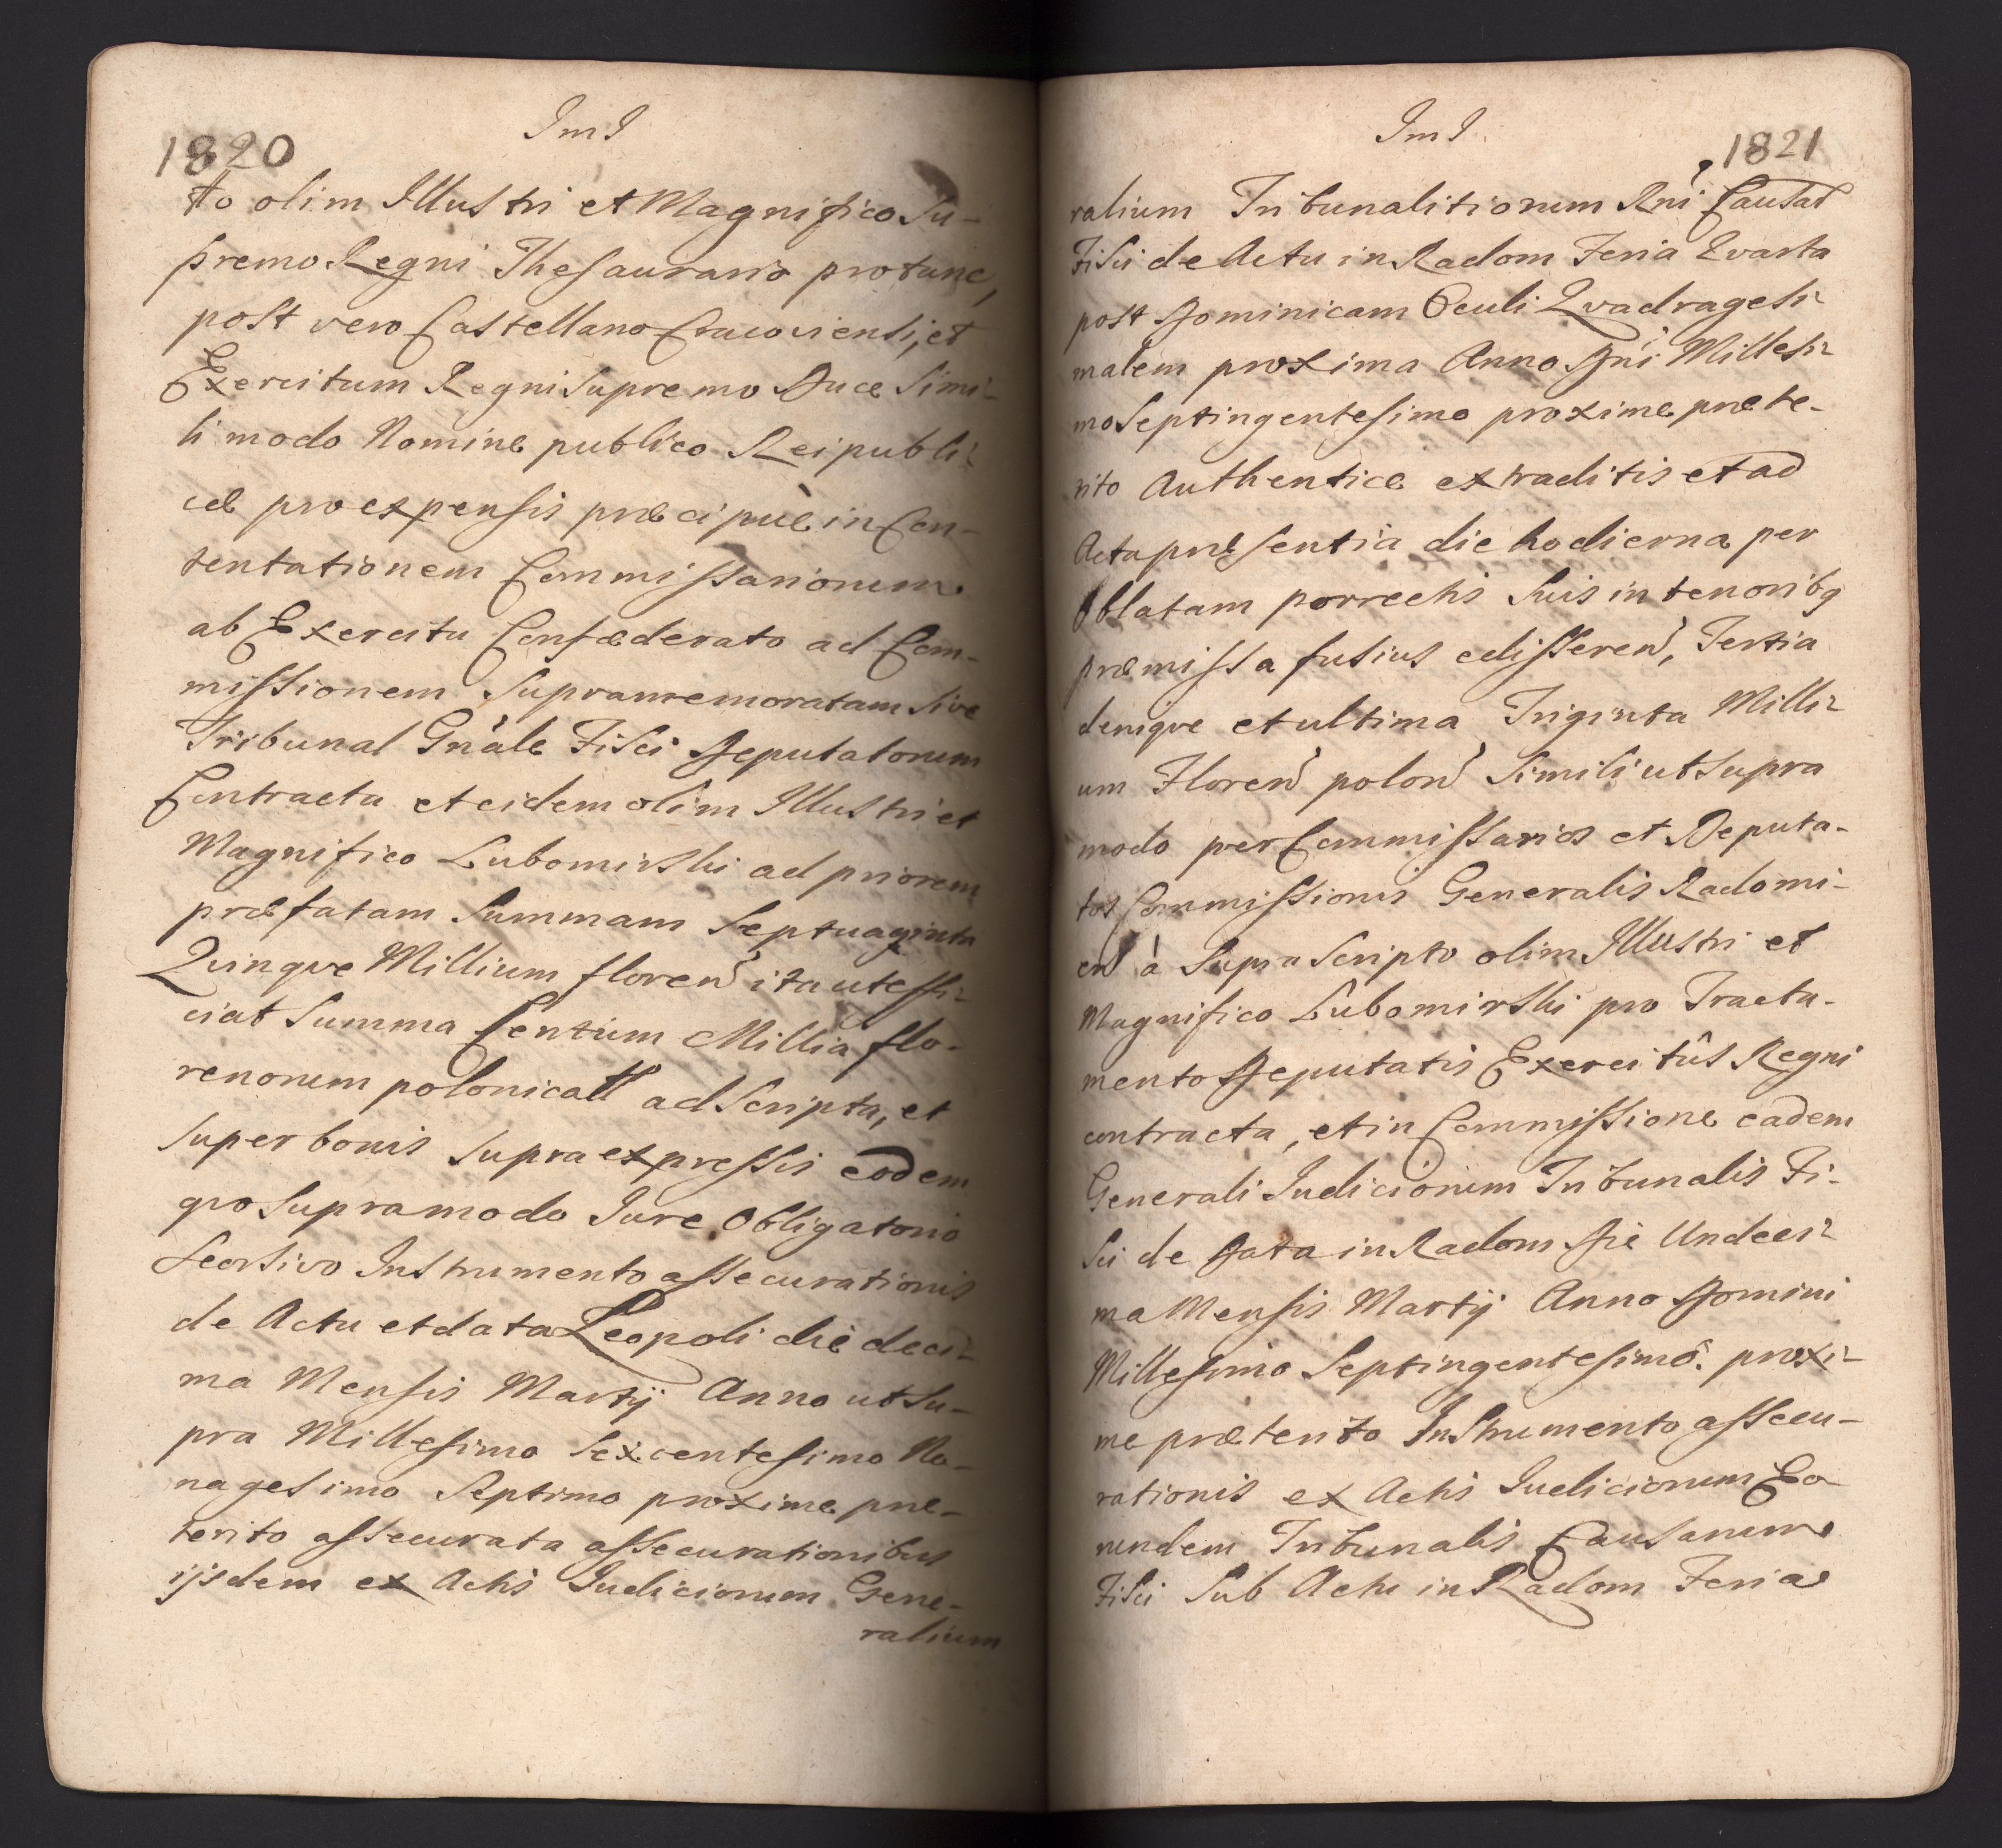 1820
ImI
to olim Illustri et Magnifico Su-
premo Regni Thesaurario protunc,
post vero Castellano Cracoviensi, et
Exercitum Regni Supremo Duce Simi-
li modo Nomine publico Reipubli-
cæ pro expensis præcipuè in Con-
tentationem Commissariorum
ab Exercitu Confæderato ad Com-
missionem Supramemoratam Sive
Tribunal Gnãle Fisci Deputatorum
Contracta et eidem olim Illustri et
Magnifico Lubomirski ad priorem
præfatam Summam Septuaginta
Qvinqve Millium floren̄ ita ut effi-
ciat Summa Centum Millia flo-
renorum polonicall adscripta, et
super bonis supra expressis eodem
qvo Supra modo Iure Obligatorio
Seorsivo Instrumento assecurationis
de Actu et data Leopoli die deci-
ma Mensis Martij Anno ut Su-
pra Millesimo Sexcentesimo No-
nagesimo Septimo proxime præ-
terito assecurata assecurationibus
ijsdem ex Actis Iudiciorum Gene-
ralium
ImI
1821
ralium Tribunalitiorum Rñi Causar
Fisci de Actu in Radom Feria Qvarta
post Dominicam Oculi Qvadragesi-
malem proxima Anno Dñi Millesi-
mo Septingentesimo proxime præte-
rito Authentice extraditis et ad
Acta præsentia die hodierna per
Oblatam porrectis Suis in tenoribg
præmissa fusius edisseren̄, Tertia
deniqve et ultima Triginta Milli-
um Floren̄ polon̄ Simili ut Supra
modo per Commissarios et Deputa-
tos Commissionis Generalis Radomi-
en̄ à Supra Scripto olim Illustri et
Magnifico Lubomirski pro Tracta-
mento Deputatis Exercitûs Regni
contracta, et in Commissione eadem
Generali Iudiciorum Tribunalis Fi-
sci de Data in Radom Die Undeci-
ma Mensis Martij Anno Domini
Millesimo Septingentesimô. proxi-
me præterito Instrumento assecu-
rationis ex Actis Iudiciorum Eo-
rundem Tribunalis Causarum
Fisci Sub Actu in Radom Feria